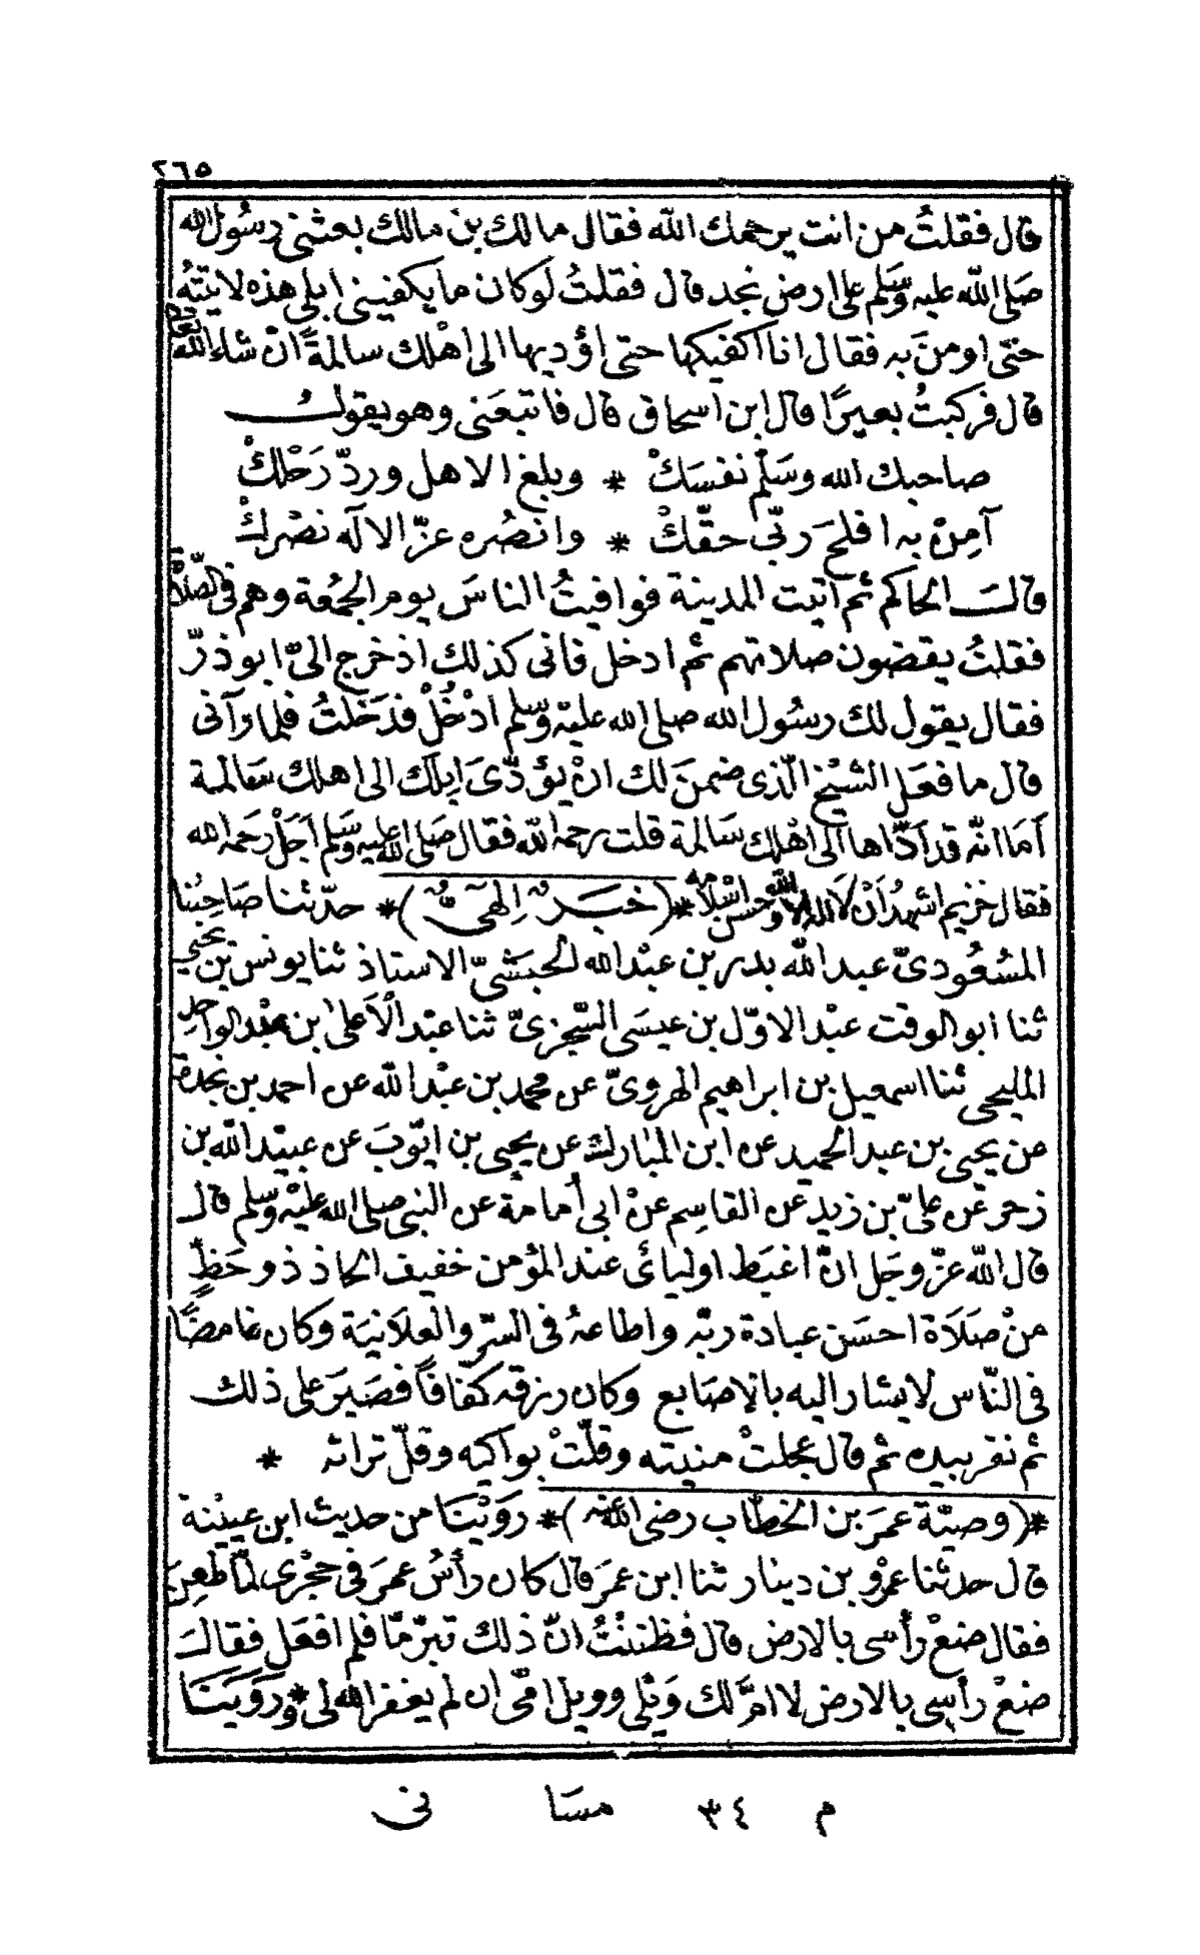 ٢٦٥
قال فقلتُ من انت يرحمك الله فقال مالك بن مالك بعثنى رسُول الله
صَلى الله عليه وسَلم على ارض نجد قال فقلتُ لو كان ما يكفينى ابلى هذه لاتيتهُ
حتى اومنَ به فقال انا اكفيكها حتى اؤديها الى اهْلك سالمةً ان شاء الله تعالى
قال فركبتُ بعيرًا قال ابن اسحاق قال فاتبعَنى وهو يقولُ
صاحبك الله وسَلّم نفسَكْ * وبلغ الاهل وردّ رَحْلكْ
آمِنْ به افلحَ ربّى حقّكْ * وانصُره عزّ الاله نصْركْ
قالَ الحاكم ثم اتيت المدينة فوافيتُ الناسَ يوم الجمُعة وهم فى الصّلاة
فقلتُ يقضون صلاتهم ثم ادخل فانى كذلك اذ خرج الىّ ابو ذرّ
فقال يقول لك رسُول الله صلى الله عليْه وسلم ادْخُلْ فدَخَلتُ فلما رآنى
قال ما فعَل الشيْخ الّذى ضمنَ لك انْ يؤدّىَ ابلَك الى اهلك سَالمة
اَمَا انّه قد اَدّاها الى اهْلك سَالمة قلت رحمه الله فقال صَلى الله عليه وسَلم اَجَلْ رَحمَه الله
فقال خزيم اشهدُ اَنْ لَا اله الا الله وحسن اسْلامه *(خبَرٌ اِلهىّ)* حدّثنا صَاحِبُنا
المسْعُودىّ عبد الله بدر بن عبْد الله الحبَشىّ الاستاذ ثنا يونس بن يحيى
ثنا ابو الوقت عبْد الاوّل بن عيسَى السّجزىّ ثنا عبْد الاَعلى بن عبْد الواحد
المليحى ثنا اسمعيل بن ابراهيم الهروىّ عن محمد بن عبْد الله عن احمد بن نجدة
عن يحيى بن عبد الحميد عن ابن المبارك عن يحيى بن ايّوبَ عن عبيْد الله بن
زحر عن علىّ بن زيد عن القاسِم عنْ ابى اُمامة عن النبى صلى الله عليْه وسلم قال
قال الله عزّ وجَل انّ اغبَط اوليائى عند المؤمن خفيف الحاذ ذو حَظٍّ
منْ صَلَاة احسَن عبادة ربّه واطاعهُ فى السّر والعلاَنيَة وكان غامضًا
فى النّاس لا يشار اليه بالاصَابع وكان رزقه كفَافاً فصَبرَ على ذلك
ثم نقر بيده ثم قال عجلتْ منيته وقلّتْ بواكيه وقلّ تراثه *
*(وصيّة عمَر بن الخطاب رضى الله عنه)* روَيْنَا من حديث ابن عييْنة
قال حدثنا عمْرو بن دينار ثنا ابن عمَر قال كان رأسُ عمَر فى حجْرى لمّا طعِنَ
فقال ضعْ رأسى بالارض قال فظننْتُ انّ ذلك تبرّمًا فلم افعَل فقالَ
ضعْ رأسِى بالارض لا امّ لك وَيْلى وويل امّى ان لم يغفر الله لى * وروَيْنَا
م ٣٤ مسَا نى